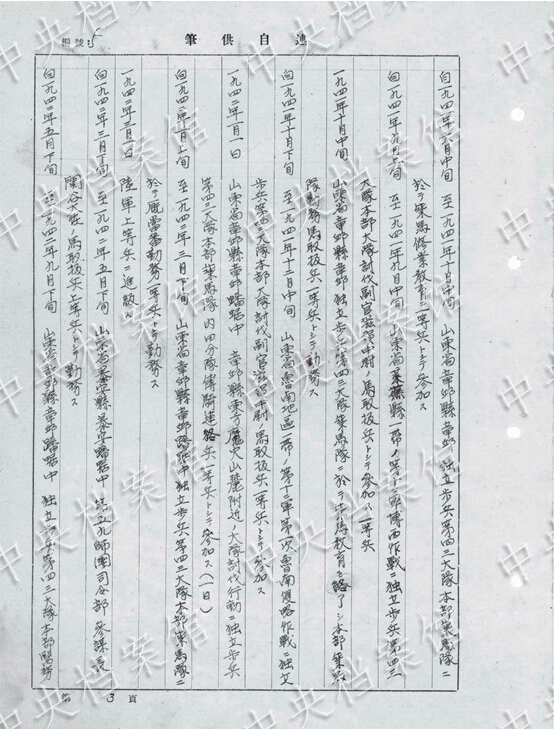 述自供筆
編號 5
自一九四一年六月中旬 至一九四一年十月中旬 山東省章邱縣章邱 独立步兵第四三大隊本部乗馬隊ニ
於テ乗馬修業教育ニ二等兵トシテ参加ス
自一九四一年九月上旬 至一九四一年九月中旬 山東省萊蕪縣一帯ノ 博西作戦ニ独立步兵第四三
大隊本部大隊討伐副官 中尉ノ馬取扱兵トシテ参加ス 一等兵
一九四一年十月中旬 山東省章邱縣章邱 独立步兵第四三大隊乗馬隊ニ於テ乗馬教育ヲ終了シ本部乗馬
隊勤務馬取扱兵一等兵トシテ勤務ス
自一九四一年十月下旬 至一九四一年十二月中旬 山東省魯南地區一帯ノ第十二軍第一次魯南侵略作戦ニ独立
步兵第四三大隊本部大隊討伐副官 中尉ノ馬取扱兵一等兵トシテ参加ス
一九四二年一月一日 山東省章邱縣章邱蟠踞中 章邱縣東方魔火山麓附近ノ大隊討伐行動ニ独立步兵
第四三大隊本部乗馬隊内田分隊傳騎連絡兵一等兵トシテ参加ス(一日)
自一九四二年一月上旬 至一九四二年三月下旬 山東省章邱縣章邱蟠踞中 独立步兵第四三大隊本部乗馬隊ニ
於テ厩當番勤務一等兵トシテ勤務ス
一九四二年三月一日 陸軍上等兵ニ進級ス
自一九四二年三月下旬 至一九四二年五月下旬 山東省泰安縣泰安蟠踞中 第五九師團司令部参謀長
開谷大佐ノ馬取扱兵上等兵トシテ勤務ス
自一九四二年五月下旬 至一九四二年九月下旬 山東省章邱縣章邱蟠踞中 独立步兵第四三大隊本部醫務
第 3 頁
中央档案馆